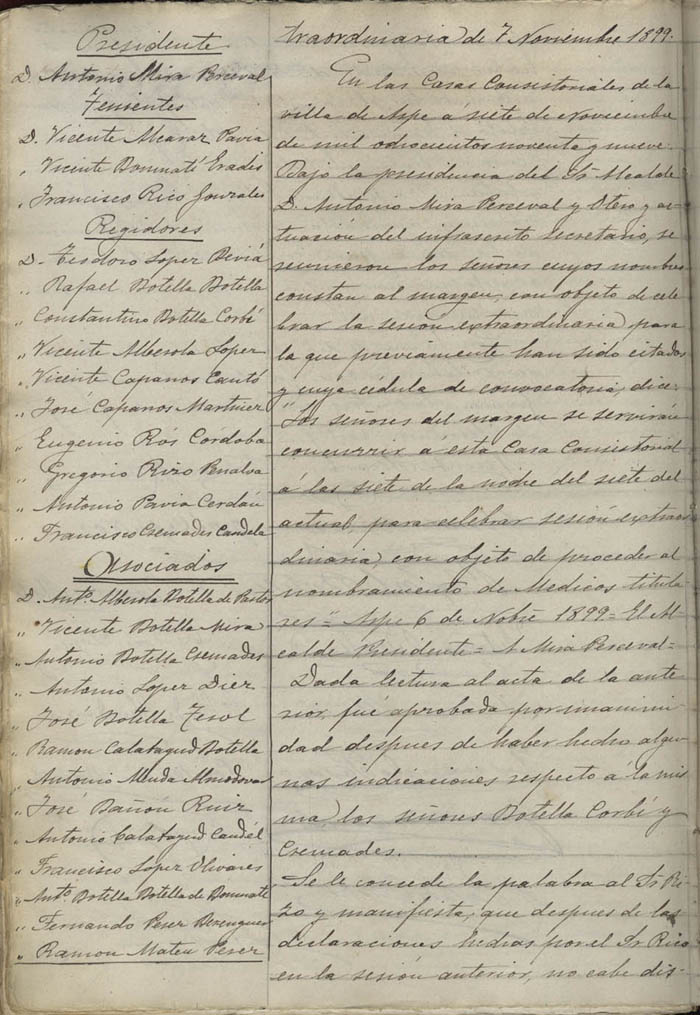 Presidente
D. Antonio Mira Perceval
Tenientes
D. Vicente Alcaraz Pavia
" Vicente Bonmatí Eradés
" Francisco Rico Gonzales
Regidores
D. Teodoro Lopez Deviá
" Rafael Botella Botella
" Constantino Botella Corbí
" Vicente Alberola Lopez
" Vicente Caparros Cantó
" José Caparros Martinez
" Eugenio Rós Córdoba
" Gregorio Rizo Penalva
" Antonio Pavia Cerdán
" Francisco Cremades Candela
Asociados
D. Antº. Alberola Botella de Pastor
" Vicente Botella Mira
" Antonio Botella Cremades
" Antonio Lopez Diez
" José Botella Terol
" Ramon Calatayud Botella
" Antonio Almodovar
" José Bañón Ruiz
" Antonio Calatayud Candél
" Francisco Lopez Olivares
" Antº. Botella Botella de Bonmatí
" Fernando Perez Berenguer
" Ramon Mateu Perez
traordinaria de 7 Noviembre 1899.
En las Casas Consistoriales de la
villa de Aspe á siete de Noviembre
de mil ochocientos noventa y nueve.
Bajo la presidencia del Sr Alcalde
D. Antonio Mira Perceval y Otero y ac-
tuación del infrascrito secretario, se
reunieron los señores cuyos nombres
constan al margen, con objeto de cele
brar la sesion extraordinaria para
la que previamente han sido citados
y cuya cédula de convocatoria, dice:
"Los señores del margen se servirán
concurrir á esta Casa Consistorial
á las siete de la noche del siete del
actual, para celebrar sesión extraor
dinaria, con objeto de proceder al
nombramiento de Medicos titula
res = Aspe 6 de Nobre 1899 = El Al
calde Presidente = A Mira Perceval =
Dada lectura al acta de la ante
rior, fué aprobada por unanimi
dad despues de haber hecho algu
nas indicaciones respecto á la mis
ma los señores Botella Corbí y
Cremades.
Se le concede la palabra al Sr Ri
zo y manifiesta, que despues de las
declaraciones hechas por el Sr Rico
en la sesión anterior, no cabe dis-